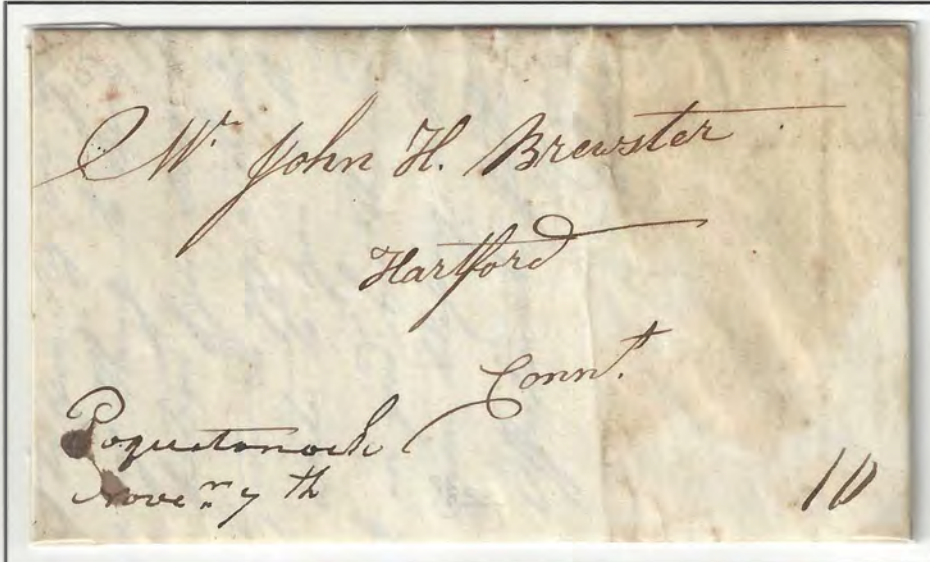 Mr. John H. Brewster
Hartford
Connt.
Poquetonock
Novem 7th
10